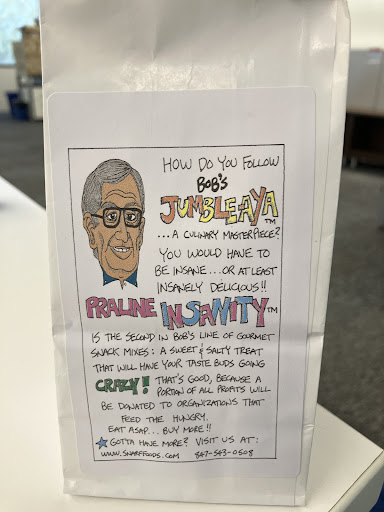 HOW DO YOU FOLLOW
BOB'S
JUMBLE-AYA™
...A CULINARY MASTERPIECE?
YOU WOULD HAVE TO
BE INSANE...OR AT LEAST
INSANELY DELICIOUS!!
PRALINE INSANITY™
IS THE SECOND IN BOB'S LINE OF GOURMET
SNACK MIXES: A SWEET & SALTY TREAT
THAT WILL HAVE YOUR TASTE BUDS GOING
CRAZY! THAT'S GOOD, BECAUSE A
PORTION OF ALL PROFITS WILL
BE DONATED TO ORGANIZATIONS THAT
FEED THE HUNGRY.
EAT ASAP... BUY MORE!!
GOTTA HAVE MORE? VISIT US AT:
WWW.SNARFFOODS.COM 847-543-0508